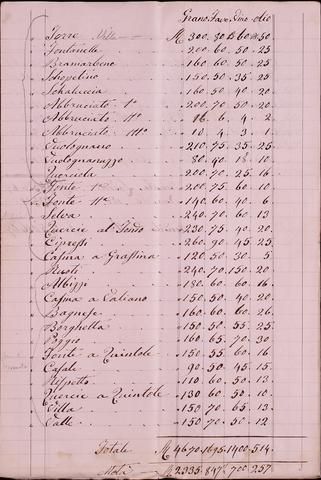 Grano. Fave. Vino. olio
Torre M 300. 80. 150. 50
Fontanelle 200. 60. 50. 25
Bramarbene 160. 60. 50. 25
150. 50. 35. 25
160. 50. 40. 20
Abbruciato 1º 200. 70. 50. 20
Abbruciato 11º 16. 6. 4. 2
Abbruciato 111º 10. 4. 3. 1
210. 75. 35. 25
80. 40. 18. 10
Querciola 200. 70. 25. 16
Fonte 1ª 200. 75. 60. 10
Fonte 11ª 140. 60. 40. 6
Selva 240. 70. 60. 13
Quercie al 230. 75. 40. 20
Cipressi 260. 90. 45. 25
Casina a Grassina 120. 50. 30. 5
Ruoti 240. 70. 150. 20
Albizzi 180. 60. 60. 16
Casina a 150. 50. 40. 20
Bagnese 160. 60. 60. 26
Borghetto 150. 50. 55. 25
Poggio 160. 65. 70. 30
Fonte a Quintole 150. 55. 60. 16
Casale 90. 50. 45. 15
110. 60. 50. 13
Quercie a Quintole 130. 60. 50. 10
Villa 150. 70. 65. 13
Valle 150. 70. 50. 12
Totale M 4670. 1695. 1400. 514
Metà M 2335. 847. 700. 257